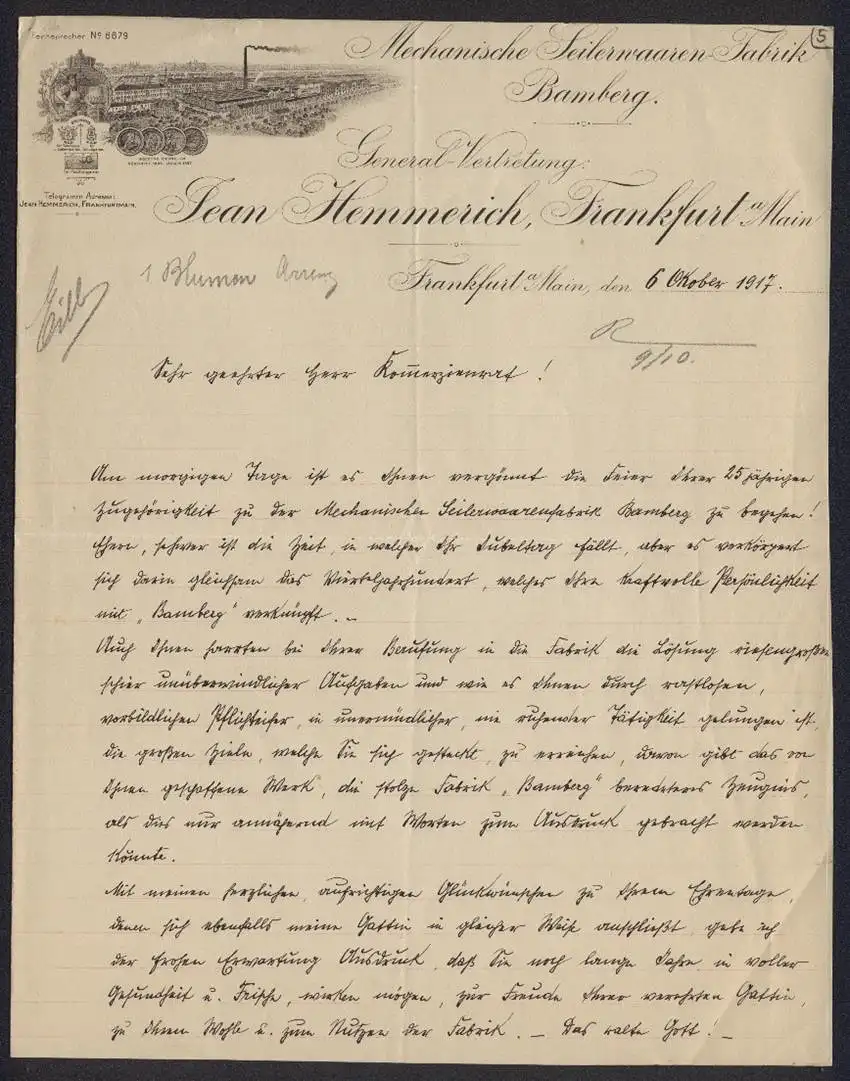 Fernsprecher Nº 6679
5
Mechanische Seilerwaaren-Fabrik
Bamberg.
General-Vertretung:
Telegramm Adresse:
Jean Hemmerich, Frankfurtmain.
Jean Hemmerich, Frankfurt a/Main
1 Blumen
Frankfurt a/Main, den 6 Oktober 1917.
R
9/10.
Sehr geehrter Herr Kommerzienrat!
Am morgigen Tage ist es Ihnen vergönnt die Feier Ihrer 25 jährigen
Zugehörigkeit zu der Mechanischen Seilerwaarenfabrik Bamberg zu begehen!
Ehern, schwer ist die Zeit, in welcher Ihr Jubeltag fällt, aber es verkörpert
sich darin gleichsam das Vierteljahrhundert, welches Ihre kraftvolle Persönlichkeit
mit „Bamberg" verknüpft. –
Auch Ihnen harrten bei Ihrer Berufung in die Fabrik die Lösung riesengroßer
schier unüberwindlicher Aufgaben und wie es Ihnen durch rastlosen,
vorbildlichen Pflichteifer, in unermüdlicher, nie ruhender Tätigkeit gelungen ist,
die großen Ziele, welche Sie sich gesteckt, zu erreichen, davon gibt das von
Ihnen geschaffene Werk, die stolze Fabrik „Bamberg" beredteres Zeugnis,
als dies nur annähernd mit Worten zum Ausdruck gebracht werden
könnte.
Mit meinen herzlichen, aufrichtigen Glückwünschen zu Ihrem Ehrentage,
denen sich ebenfalls meine Gattin in gleicher Weise anschließt, gebe ich
der frohen Erwartung Ausdruck, daß Sie noch lange Jahre in voller
Gesundheit u. Frische, wirken mögen, zur Freude Ihrer verehrten Gattin,
zu Ihrem Wohle u. zum Nutzen der Fabrik. – Das walte Gott! –